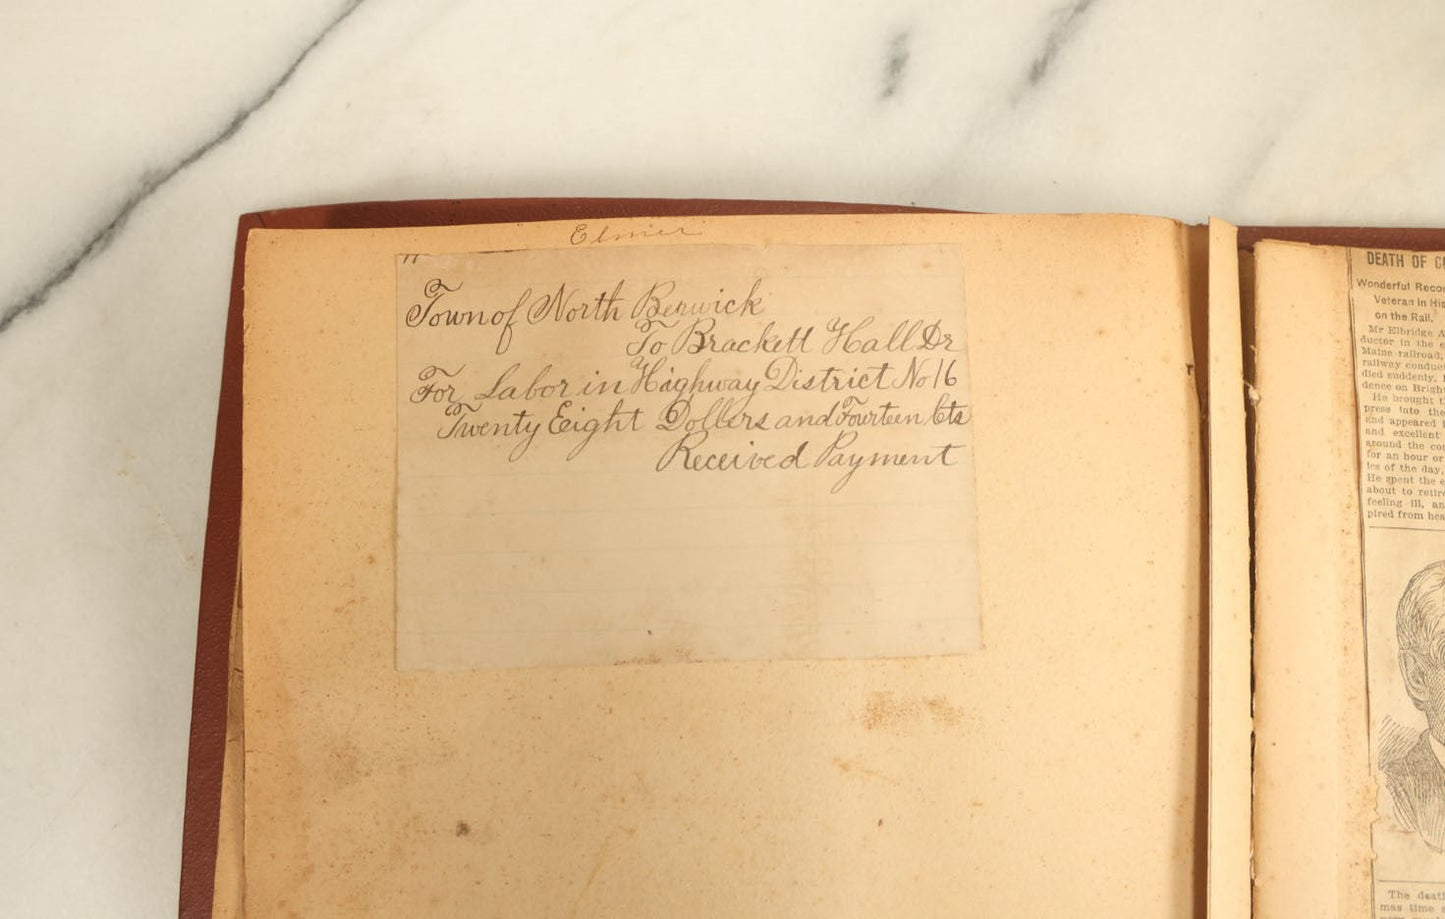 Elmer
Town of North Berwick
To Brackett Hall Dr
For Labor in Highway District No 16
Twenty Eight Dollers and Fourteen Cts
Received Payment
DEATH OF
Wonderful Recor
Veteran in His
on the Rail.
Mr Elbridge A
ductor in the e
Maine railroad,
railway conduc
died suddenly,
dence on Brigh
He brought t
press into the
end appeared
and excellent
around the co
for an hour or
ies of the day,
He spent the e
about to retir
feeling ill, an
pired from hea
The deat
mas time